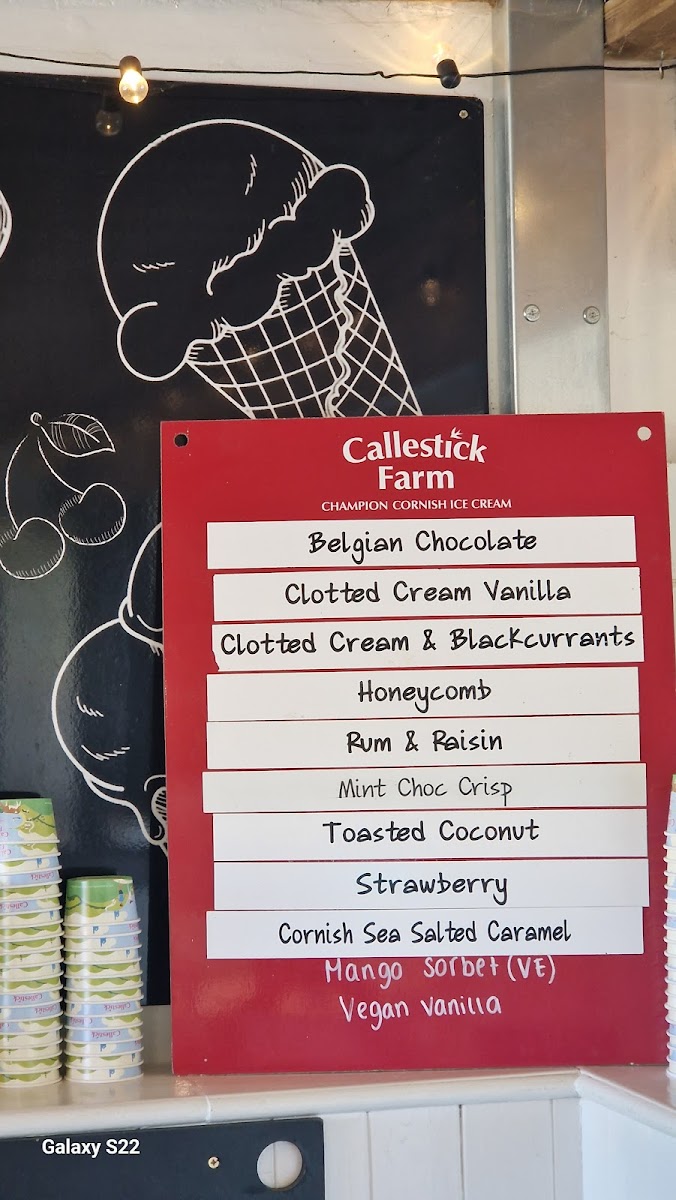 Callestick
Farm
CHAMPION CORNISH ICE CREAM
Belgian Chocolate
Clotted Cream Vanilla
Clotted Cream & Blackcurrants
Honeycomb
Rum & Raisin
Mint Choc Crisp
Toasted Coconut
Strawberry
Cornish Sea Salted Caramel
Mango Sorbet (VE)
Vegan Vanilla
Galaxy S22